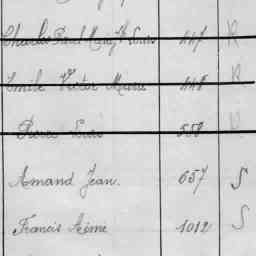 Charles Paul Louis 447 R
Emile Victor Marie 448 R
Pierre Louis 558 R
Amand Jean. 657 S
Francis Aimé 1012 S